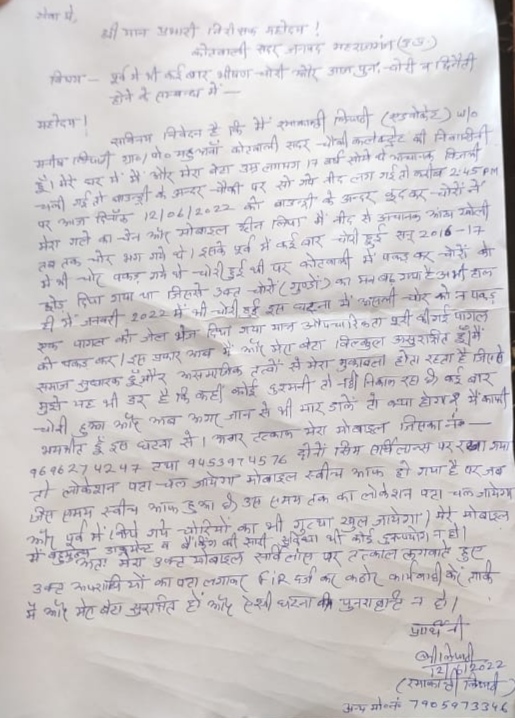 सेवा में,
श्री मान प्रभारी निरीक्षक महोदय!
कोतवाली सदर जनपद महराजगंज (उ.प्र.)
विषय— पूर्व में भी कई बार भीषण चोरी और आज पुनः चोरी व छिनैती
होने के सम्बन्ध में—
महोदया!
सविनय निवेदन है कि मैं रमाकान्ती त्रिपाठी (एडवोकेट) w/o
त्रिपाठी ग्रा०/पो० महुअवाँ कोतवाली सदर चौकी कलेक्ट्रेट की निवासिनी
हूँ। मेरे घर में मैं और मेरा बेटा उम्र लगभग 17 वर्ष सोये थे अचानक बिजली
चली गई तो बाउन्ड्री के अन्दर चौकी पर सो गये नींद लग गई तो करीब 2:45 PM
पर आज दिनाँक 12/06/2022 को बाउन्ड्री के अन्दर कूदकर चोरों ने
मेरा गले का चैन और मोबाइल छीन लिया मैं नींद से अचानक आँख खोली
तब तक चोर भाग गये थे। इसके पूर्व में कई बार चोरी हुई सन् 2016-17
में भी चोर पकड़े गये थे चोरी हुई थी पर कोतवाली में पकड़कर चोरों को
छोड़ दिया गया था जिससे उक्त चोरों (गुण्डों) का मन बढ़ गया है अभी हाल
ही में जनवरी 2022 में भी चोरी हुई इस घटना में असली चोर को न पकड़
एक पागल को जेल भेज दिया गया मात्र औपचारिकता पूरी की गई पागल
को पकड़ कर। इस प्रकार आज मैं और मेरा बेटा बिल्कुल असुरक्षित हैं। मैं
समाज सुधारक हूँ और असामाजिक तत्वों से मेरा मुकाबला होता रहता है जिससे
मुझे यह भी डर है कि कहीं कोई दुश्मनी तो नहीं निकाल रहा है, कई बार
चोरी हुआ और अब अगर जान से भी मार डालें तो क्या होगा? मैं काफी
भयभीत हूँ इस घटना से। अगर तत्काल मेरा मोबाइल जिसका नं०—
9696274247 तथा 9453974576 दोनों सिम सर्विलान्स पर रखा गया
तो लोकेशन पता चल जायेगा मोबाइल स्वीच आफ हो गया है पर जब
जिस समय स्वीच आफ हुआ है, उस समय तक का लोकेशन पता चल जायेगा
और पूर्व में किये गये चोरियों का भी गुत्थी खुल जायेगा। मेरे मोबाइल
में बहुमूल्य डाक्यूमेन्ट व बैंकिंग की सारी सुविधा भी कोई दुरूपयोग न हो।
अतः मेरा उक्त मोबाइल सर्विलांस पर तत्काल लगवाते हुए
उक्त अपराधियों का पता लगाकर FIR दर्ज कर कठोर कार्यवाही करें ताकि
मैं और मेरा बेटा सुरक्षित हों और ऐसी घटना की पुनरावृत्ति न हो।
प्रार्थिनी
12/6/2022
(रमाकान्ती त्रिपाठी)
अन्य मो०नं० 7905973346